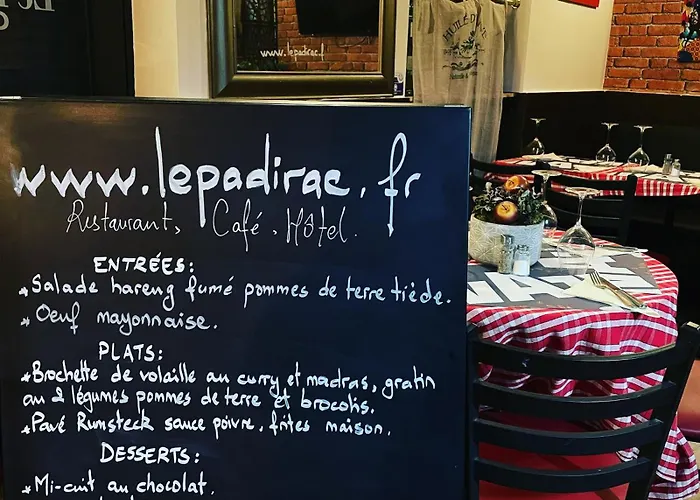 www.lepadirac.fr
www.lepadirac.fr
Restaurant, Café, Hôtel.
ENTRÉES:
* Salade hareng fumé pommes de terre tiède.
* Oeuf mayonnaise.
PLATS:
* Brochette de volaille au curry et madras, gratin
au 2 légumes pommes de terre et brocolis.
* Pavé Rumsteck sauce poivre, frites maison.
DESSERTS:
* Mi-cuit au chocolat.